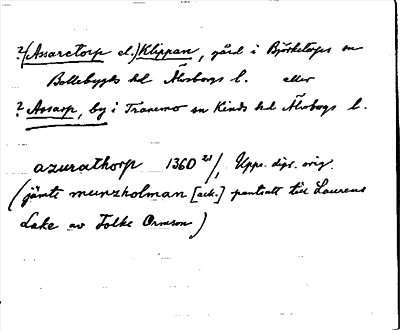 ?/(Assaretorp el.) Klippan, gård i Björketorps sn
Bollebygds hd Älvsborgs l. eller
? Assarp, by i Tranemo sn Kinds hd Älvsbogs l.
azurathorp 1360 /, Upps. dipl. orig.
(jämte munzholman [ack.] pantsatt till Laurens
Lake av Folke Ormson)